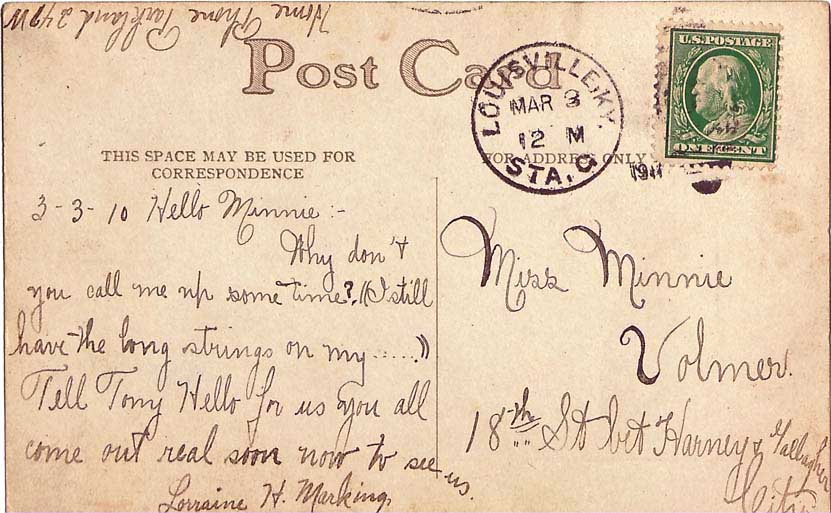 Home Phone Parkland 249 M
Post Card
LOUISVILLE, KY.
MAR 3
12 M
STA. G
1910
U.S. POSTAGE
ONE CENT
THIS SPACE MAY BE USED FOR
CORRESPONDENCE
FOR ADDRESS ONLY
3-3-10 Hello Minnie:-
Why don't
you call me up some time? ((I still
have the long strings on my ......))
Tell Tony Hello for us you all
come out real soon now to see us.
Lorraine H. Marking
Miss Minnie
Volmer.
18th St bet Harney & Gallagher
City